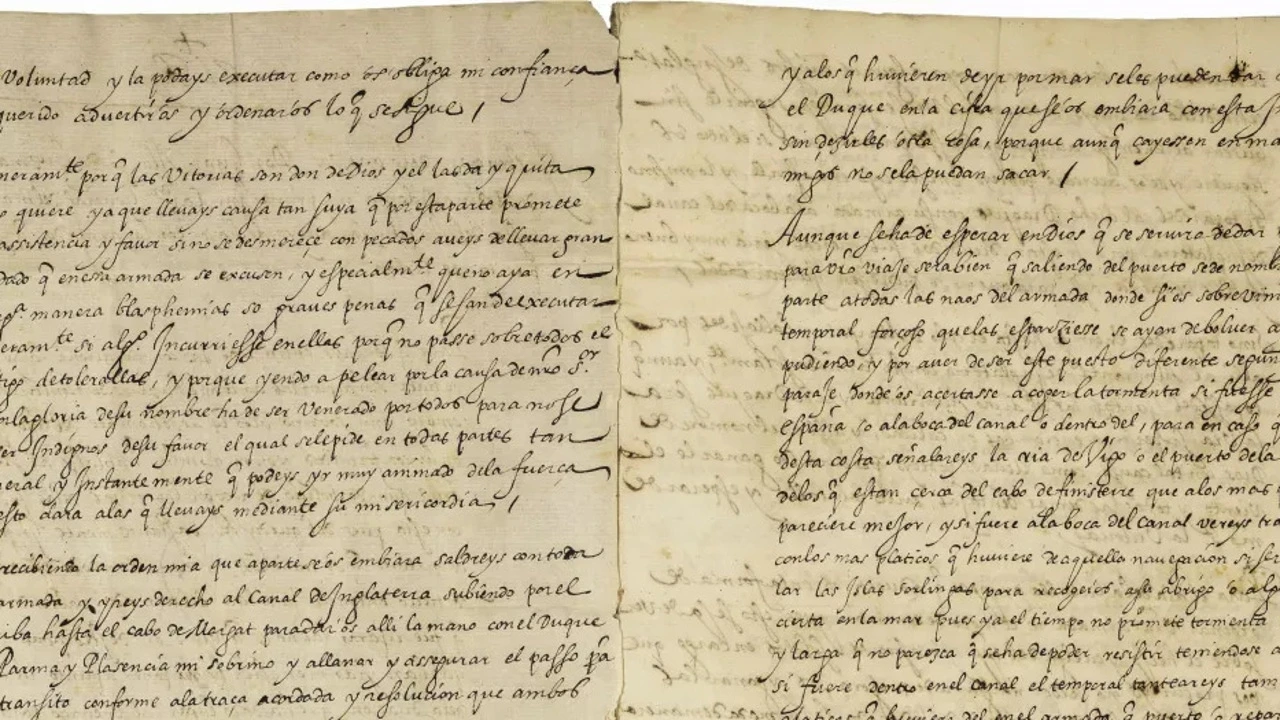 Voluntad y la podays executar como os obliga mi confiança
querido advertiros y ordenaros lo q̃ se sigue /
neram.te porq̃ las Vitorias son don de Dios y el las da y quita
o quiere ya que llevays causa tan suya q̃ por esta parte promete
assistencia y favor si no se desmereçe con pecados aveys de llevar gran
dado q̃ en esta armada se excusen, y especialm.te que no aya en
manera blasphemias so graves penas q̃ se han de executar
eram.te si alg.o Incurriesse en ellas porq̃ no passe sobre todos el
tigo de tolerallas, y porque yendo a pelear por la causa de nro S.or
or la gloria de su nombre ha de ser Venerado por todos para no se
er Indignos de su favor el qual se le pide en todas partes tan
neral y Instantemente q̃ podeys yr muy animado de la fuerça
esto dara a las q̃ llevays mediante su misericordia /
recibiendo la orden mia que aparte se os embiara saldreys con toda
armada y yreys derecho al Canal de Inglaterra subiendo por el
iba hasta el cabo de Margat para daros alli la mano con el Duque
Parma y Plasencia mi sobrino y allanar y assegurar el passo p̃a
transito conforme a la traça acordada y resolucion que ambos
y a los q̃ huvieren de yr por mar se les pueden dar
el Duque en la cifra que se os embiara con esta
sin dezirles otra cosa, porque aunq̃ cayessen en ma
migos no se la puedan sacar /
Aunque se ha de esperar en Dios q̃ se servira de dar
para vro viaje sera bien q̃ saliendo del puerto se de nomb
parte a todas las naos del armada donde si os sobrevin
temporal forçoso que las esparziesse se ayan de bolver a
pudiendo, y por aver de ser este puesto diferente segun
paraje donde os açertasse a coger la tormenta si fuesse
españa o a la boca del canal o dentro del, para en caso q
desta costa señalareys la ria de Vigo o el puerto de la
de los q̃ estan cerca del cabo de finisterre que a los mas
pareciere mejor, y si fuere a la boca del canal vereys tra
con los mas platicos q̃ huviere de aquella navegacion si ser
lar las Islas Sorlingas para recogeros a su abrigo o alg
cierta en la mar pues ya el tiempo no promete tormenta
y larga q̃ no parezca q̃ se ha de poder resistir temendose a
si fuere dentro en el canal el temporal tanteareys tam
platicos q̃ huviere del en el armada q̃ puerto o repar